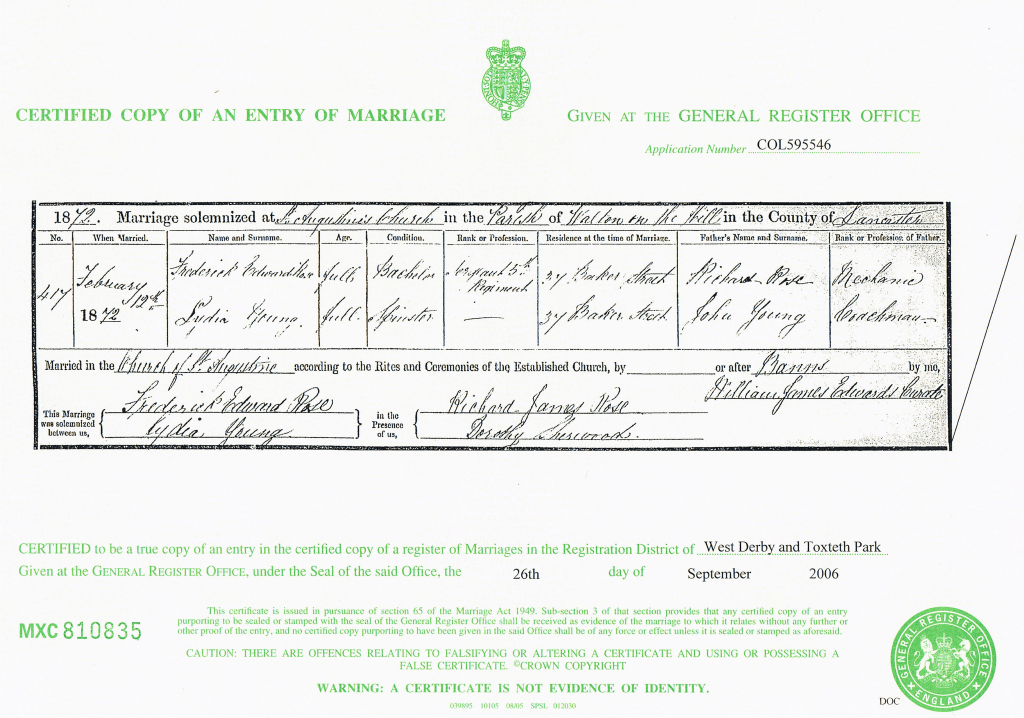 CERTIFIED COPY OF AN ENTRY OF MARRIAGE
GIVEN AT THE GENERAL REGISTER OFFICE
Application Number COL595546
1872. Marriage solemnized at St. Augustine's Church in the Parish of Walton on the Hill in the County of Lancaster
No. When Married. Name and Surname. Age. Condition. Rank or Profession. Residence at the time of Marriage. Father's Name and Surname. Rank or Profession of Father.
417 February 12th 1872
Frederick Edward Rose full Bachelor Sergeant 5th Regiment 37 Baker Street Richard Rose Mechanic
Lydia Young full. Spinster — 37 Baker Street John Young Coachman
Married in the Church of St. Augustine according to the Rites and Ceremonies of the Established Church, by or after Banns by me,
William James Edwards Curate
This Marriage was solemnized between us,
Frederick Edward Rose
Lydia Young
in the Presence of us,
Richard James Rose
Dorothy Sherwood.
CERTIFIED to be a true copy of an entry in the certified copy of a register of Marriages in the Registration District of West Derby and Toxteth Park
Given at the GENERAL REGISTER OFFICE, under the Seal of the said Office, the 26th day of September 2006
MXC 810835
This certificate is issued in pursuance of section 65 of the Marriage Act 1949. Sub-section 3 of that section provides that any certified copy of an entry
purporting to be sealed or stamped with the seal of the General Register Office shall be received as evidence of the marriage to which it relates without any further or
other proof of the entry, and no certified copy purporting to have been given in the said Office shall be of any force or effect unless it is sealed or stamped as aforesaid.
CAUTION: THERE ARE OFFENCES RELATING TO FALSIFYING OR ALTERING A CERTIFICATE AND USING OR POSSESSING A
FALSE CERTIFICATE. ©CROWN COPYRIGHT
WARNING: A CERTIFICATE IS NOT EVIDENCE OF IDENTITY.
039895 10105 08/05 SPSL 012030
GENERAL REGISTER OFFICE
ENGLAND
DOC